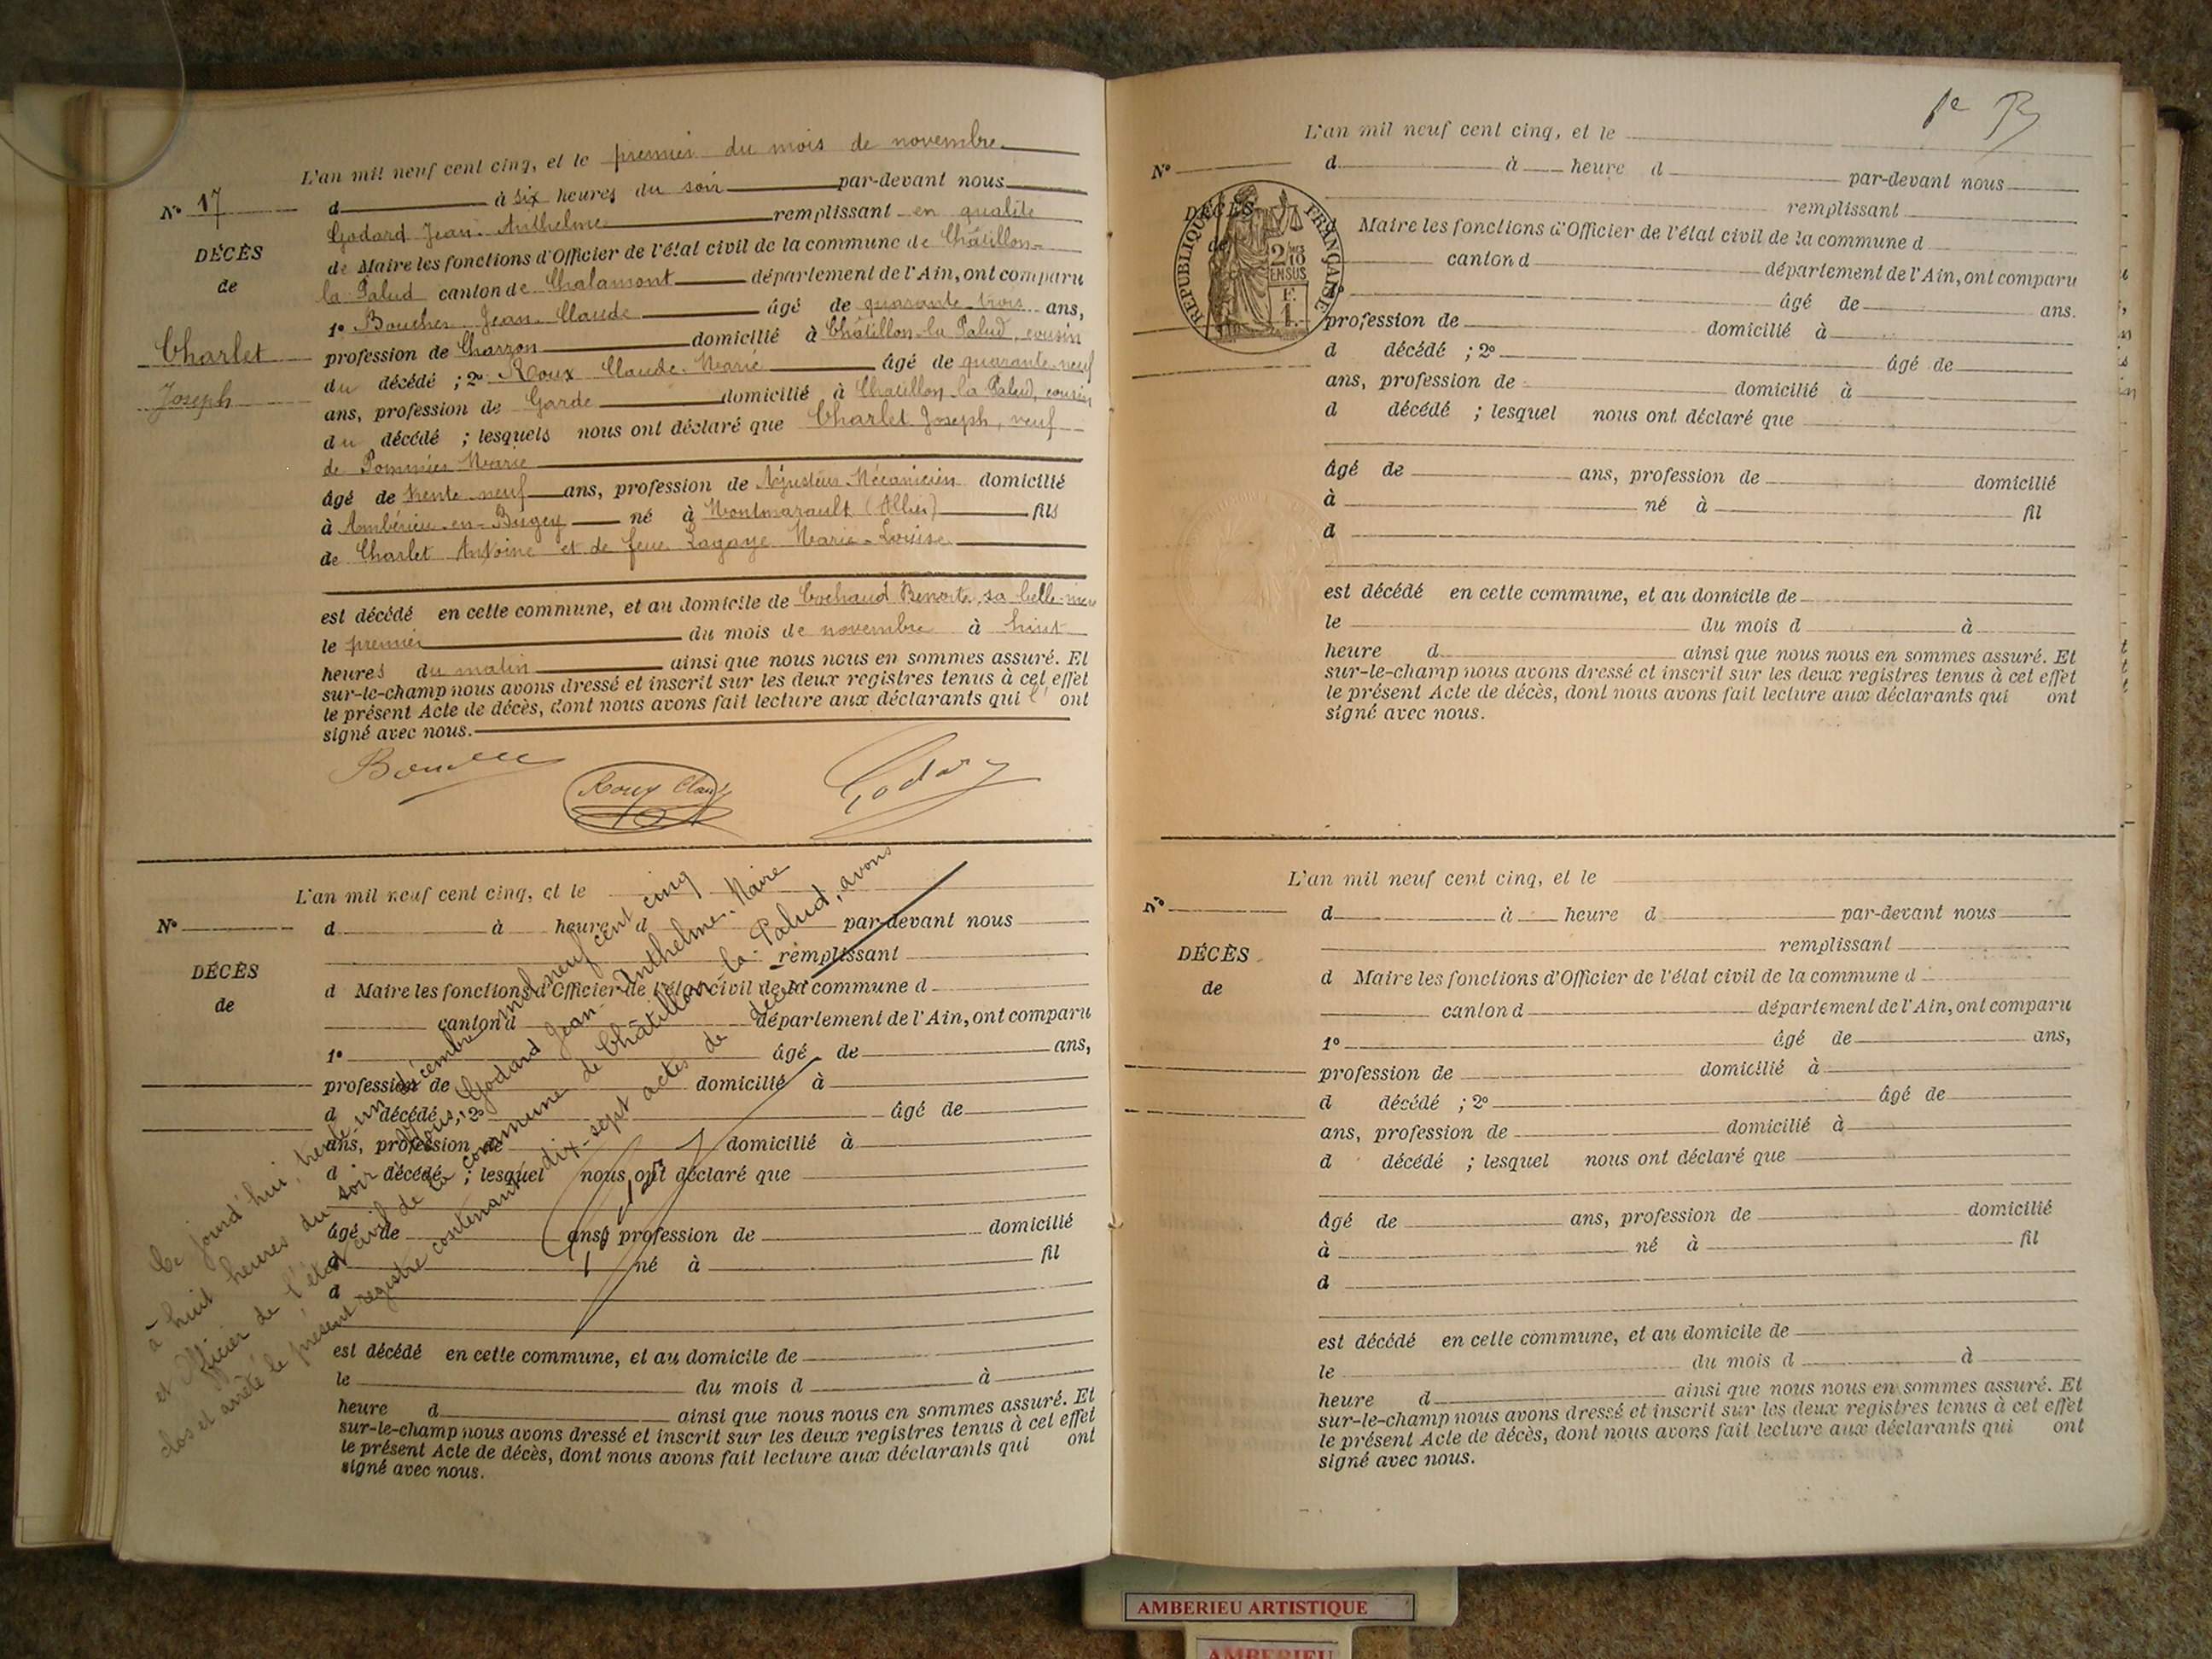 L'an mil neuf cent cinq, et le premier du mois de novembre
N° 17
d à six heures du soir par-devant nous
Godard Jean-Anthelme remplissant en qualité
DÉCÈS
de
de Maire les fonctions d'Officier de l'état civil de la commune de Châtillon-
la-Palud canton de Chalamont département de l'Ain, ont comparu
1° Boucher Jean-Claude âgé de quarante-trois ans,
Charlet
Joseph
profession de Charron domicilié à Châtillon-la-Palud, cousin
du décédé ; 2° Roux Claude-Marie âgé de quarante-neuf
ans, profession de Garde domicilié à Châtillon-la-Palud, cousin
du décédé ; lesquels nous ont déclaré que Charlet Joseph, veuf
de Pommier Marie
âgé de trente-neuf ans, profession de Ajusteur-Mécanicien domicilié
à Ambérieu-en-Bugey né à Montmarault (Allier) fils
de Charlet Antoine et de feue Lagaye Marie-Louise
est décédé en cette commune, et au domicile de Benoite, sa belle-mère
le premier du mois de novembre à huit
heures du matin ainsi que nous nous en sommes assuré. Et
sur-le-champ nous avons dressé et inscrit sur les deux registres tenus à cet effet
le présent Acte de décès, dont nous avons fait lecture aux déclarants qui l' ont
signé avec nous.
Roux Claude
Godard
L'an mil neuf cent cinq, et le
N° d à heure d par-devant nous
remplissant
DÉCÈS
de
d Maire les fonctions d'Officier de l'état civil de la commune d
canton d département de l'Ain, ont comparu
1° âgé de ans,
profession de domicilié à
d décédé ; 2° âgé de
ans, profession de domicilié à
d décédé ; lesquel nous ont déclaré que
âgé de ans, profession de domicilié
à né à fil
d
est décédé en cette commune, et au domicile de
le du mois d à
heure d ainsi que nous nous en sommes assuré. Et
sur-le-champ nous avons dressé et inscrit sur les deux registres tenus à cet effet
le présent Acte de décès, dont nous avons fait lecture aux déclarants qui ont
signé avec nous.
Ce jourd'hui, trente-un décembre mil neuf cent cinq
à huit heures du soir Nous, Godard Jean-Anthelme, Maire
et Officier de l'état civil de la commune de Châtillon-la-Palud, avons
clos et arrêté le présent registre contenant dix-sept actes de décès
L'an mil neuf cent cinq, et le
N° d à heure d par-devant nous
remplissant
DÉCÈS
de
RÉPUBLIQUE FRANÇAISE
2/10
EN SUS
F.
1.
d Maire les fonctions d'Officier de l'état civil de la commune d
canton d département de l'Ain, ont comparu
1° âgé de ans.
profession de domicilié à
d décédé ; 2° âgé de
ans, profession de domicilié à
d décédé ; lesquel nous ont déclaré que
âgé de ans, profession de domicilié
à né à fil
d
est décédé en cette commune, et au domicile de
le du mois d à
heure d ainsi que nous nous en sommes assuré. Et
sur-le-champ nous avons dressé et inscrit sur les deux registres tenus à cet effet
le présent Acte de décès, dont nous avons fait lecture aux déclarants qui ont
signé avec nous.
L'an mil neuf cent cinq, et le
N° d à heure d par-devant nous
remplissant
DÉCÈS
de
d Maire les fonctions d'Officier de l'état civil de la commune d
canton d département de l'Ain, ont comparu
1° âgé de ans,
profession de domicilié à
d décédé ; 2° âgé de
ans, profession de domicilié à
d décédé ; lesquel nous ont déclaré que
âgé de ans, profession de domicilié
à né à fil
d
est décédé en cette commune, et au domicile de
le du mois d à
heure d ainsi que nous nous en sommes assuré. Et
sur-le-champ nous avons dressé et inscrit sur les deux registres tenus à cet effet
le présent Acte de décès, dont nous avons fait lecture aux déclarants qui ont
signé avec nous.
AMBERIEU ARTISTIQUE
AMBERIEU